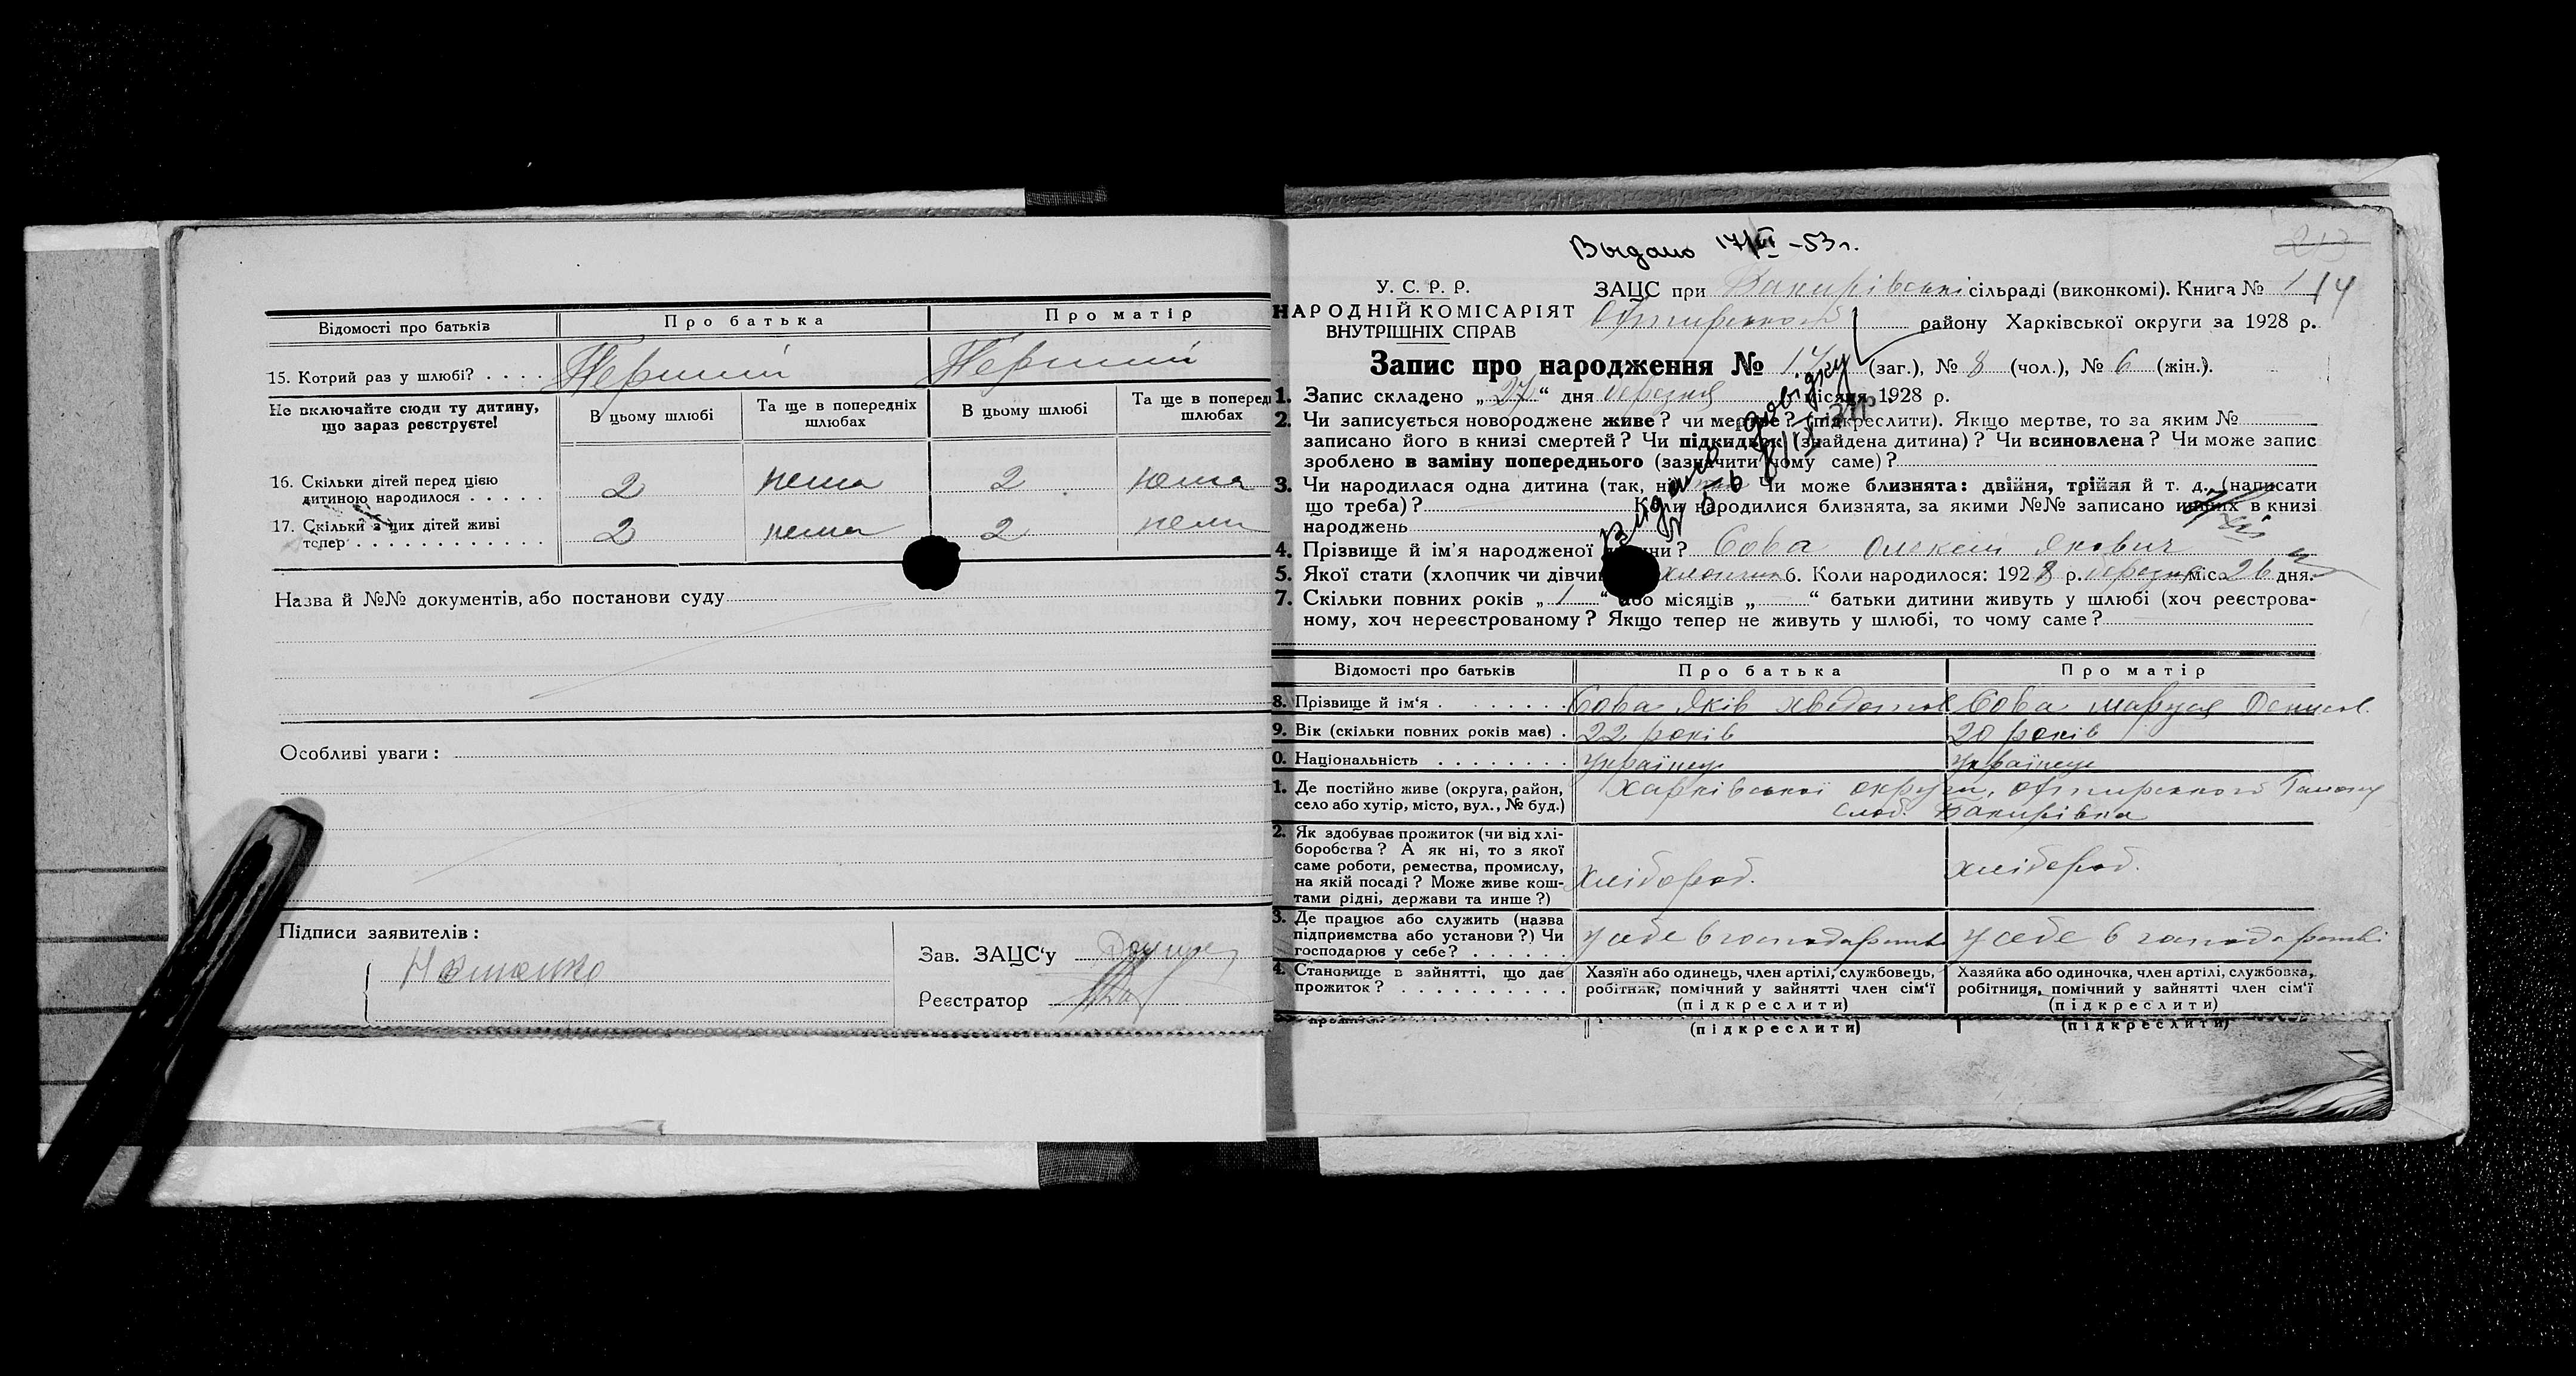 Відомості про батьків
Про батька
Про матір
15. Котрий раз у шлюбі? . . . .
Перший
Перший
Не включайте сюди ту дитину,
що зараз реєструєте!
В цьому шлюбі
Та ще в попередніх
шлюбах
В цьому шлюбі
Та ще в поперед
шлюбах
16. Скільки дітей перед цією
дитиною народилося . . . . .
2
нема
2
нема
17. Скільки з цих дітей живі
тепер . . . . . . . . . . . .
2
нема
2
нема
Назва й №№ документів, або постанови суду
Особливі уваги :
Підписи заявителів :
Зав. ЗАЦС‘у
Реєстратор
Выдано 17/VI -53 г.
213
У. С. Р. Р.
НАРОДНІЙ КОМІСАРІЯТ
ВНУТРІШНІХ СПРАВ
ЗАЦС при сільраді (виконкомі). Книга № 1
14
району Харківської округи за 1928 р.
Запис про народження № 14 (заг.), № 8 (чол.), № 6 (жін.).
1. Запис складено „ 27 “ дня березня місяця 1928 р.
2. Чи записується новороджене живе? чи мертве? (підкреслити). Якщо мертве, то за яким №
записано його в книзі смертей? Чи підкидьок (знайдена дитина)? Чи всиновлена? Чи може запис
зроблено в заміну попереднього (зазначити чому саме)?
3. Чи народилася одна дитина (так, ні) Чи може близнята: двійня, трійня й т. д., (написати
що треба)? Коли народилися близнята, за якими №№ записано инших в книзі
народжень
Видано довідку
4. Прізвище й ім‘я народженої дитини? Сова Олексій Якович
5. Якої стати (хлопчик чи дівчин хлопчик 6. Коли народилося: 1928 р. березня міся 26 дня.
7. Скільки повних років „ 1 “ або місяців „ “ батьки дитини живуть у шлюбі (хоч реєстрова-
ному, хоч нереєстрованому? Якщо тепер не живуть у шлюбі, то чому саме?
Відомості про батьків
Про батька
Про матір
8. Прізвище й ім‘я . . . . . . .
Сова Яків
Сова Маруся Денисов.
9. Вік (скільки повних років має) .
22 років
20 років
0. Національність . . . . . . . .
Українец
Українец
1. Де постійно живе (округа, район,
село або хутір, місто, вул., № буд.)
Харківської округи,
слоб.
2. Як здобуває прожиток (чи від хлі-
боробства? А як ні, то з якої
саме роботи, ремества, промислу,
на якій посаді? Може живе кош-
тами рідні, держави та инше?)
хлібороб.
хлібороб.
3. Де працює або служить (назва
підприємства або установи?) Чи
господарює у себе? . . . . . .
у себе в господарстві
у себе в господарстві
4. Становище в зайнятті, що дає
прожиток? . . . . . . . . . .
Хазяїн або одинець, член артілі, службовець,
робітник, помічний у зайнятті член сім‘ї
(підкреслити)
Хазяйка або одиночка, член артілі, службовка,
робітниця, помічний у зайнятті член сім‘ї
(підкреслити)
(підкреслити)
(підкреслити)